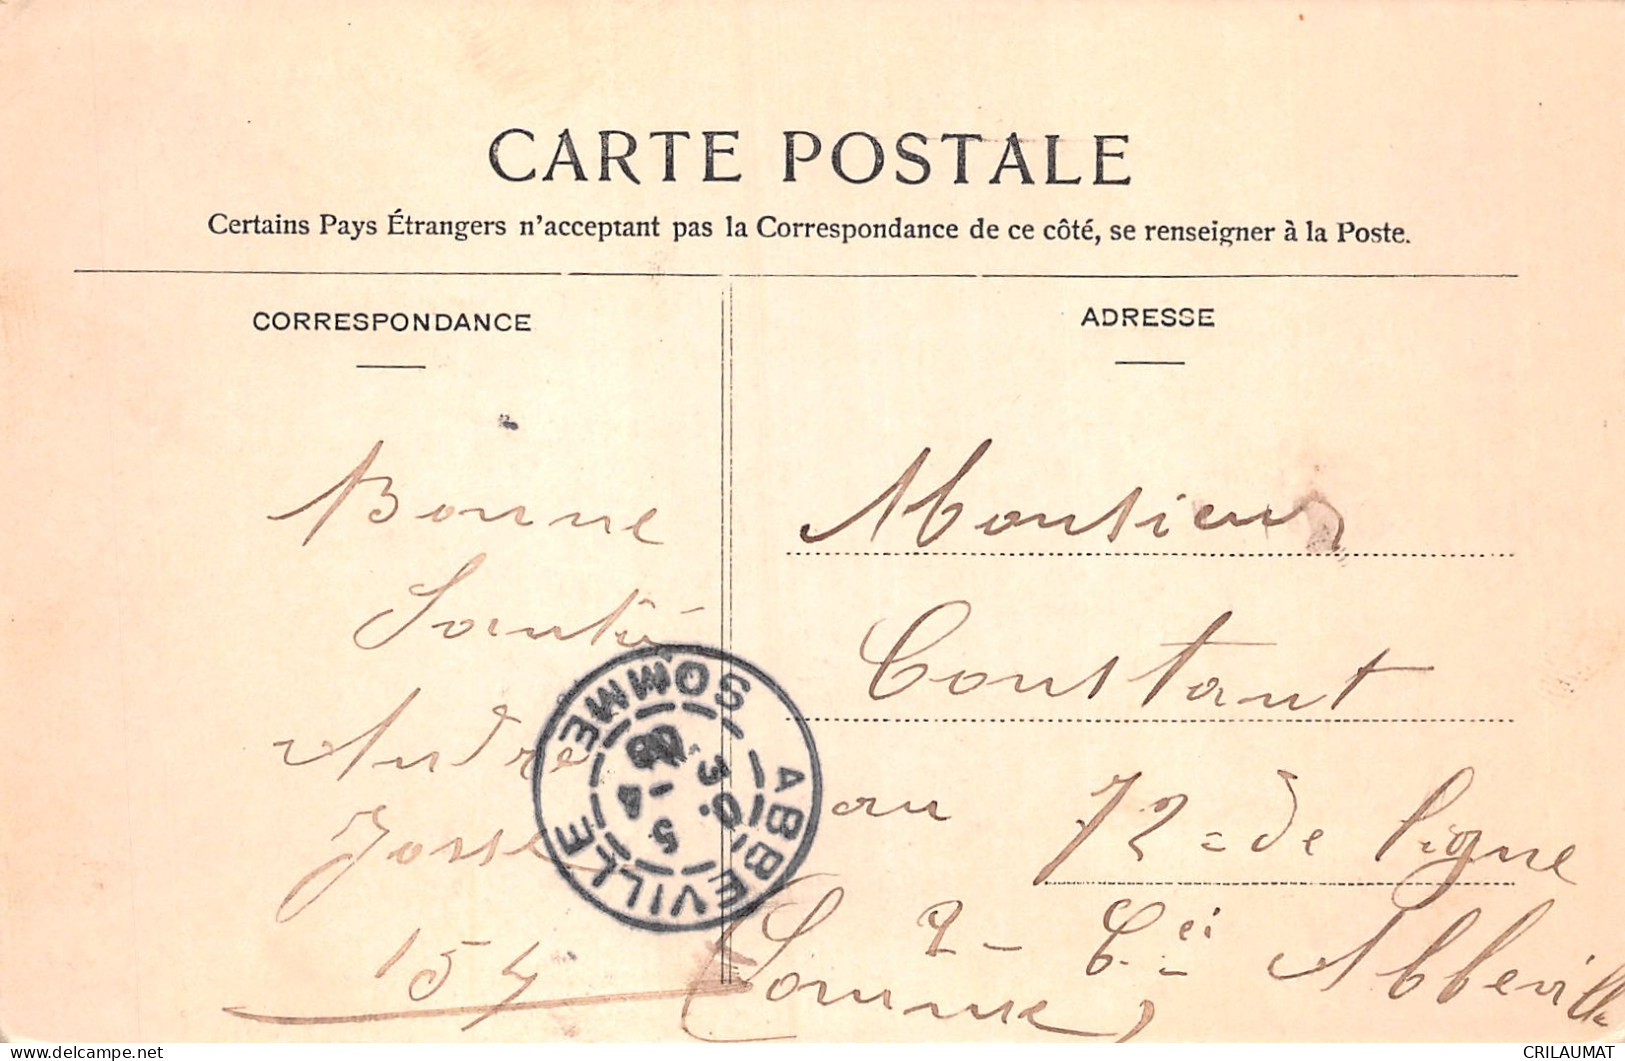 CARTE POSTALE
Certains Pays Étrangers n'acceptant pas la Correspondance de ce côté, se renseigner à la Poste.
CORRESPONDANCE
Bonne
Santé
André
Josse
154
ADRESSE
Monsieur
Constant
au 72 = de ligne
2 - Cie Abbeville
(Somme)
ABBEVILLE
SOMME
5 - 4
CRILAUMAT